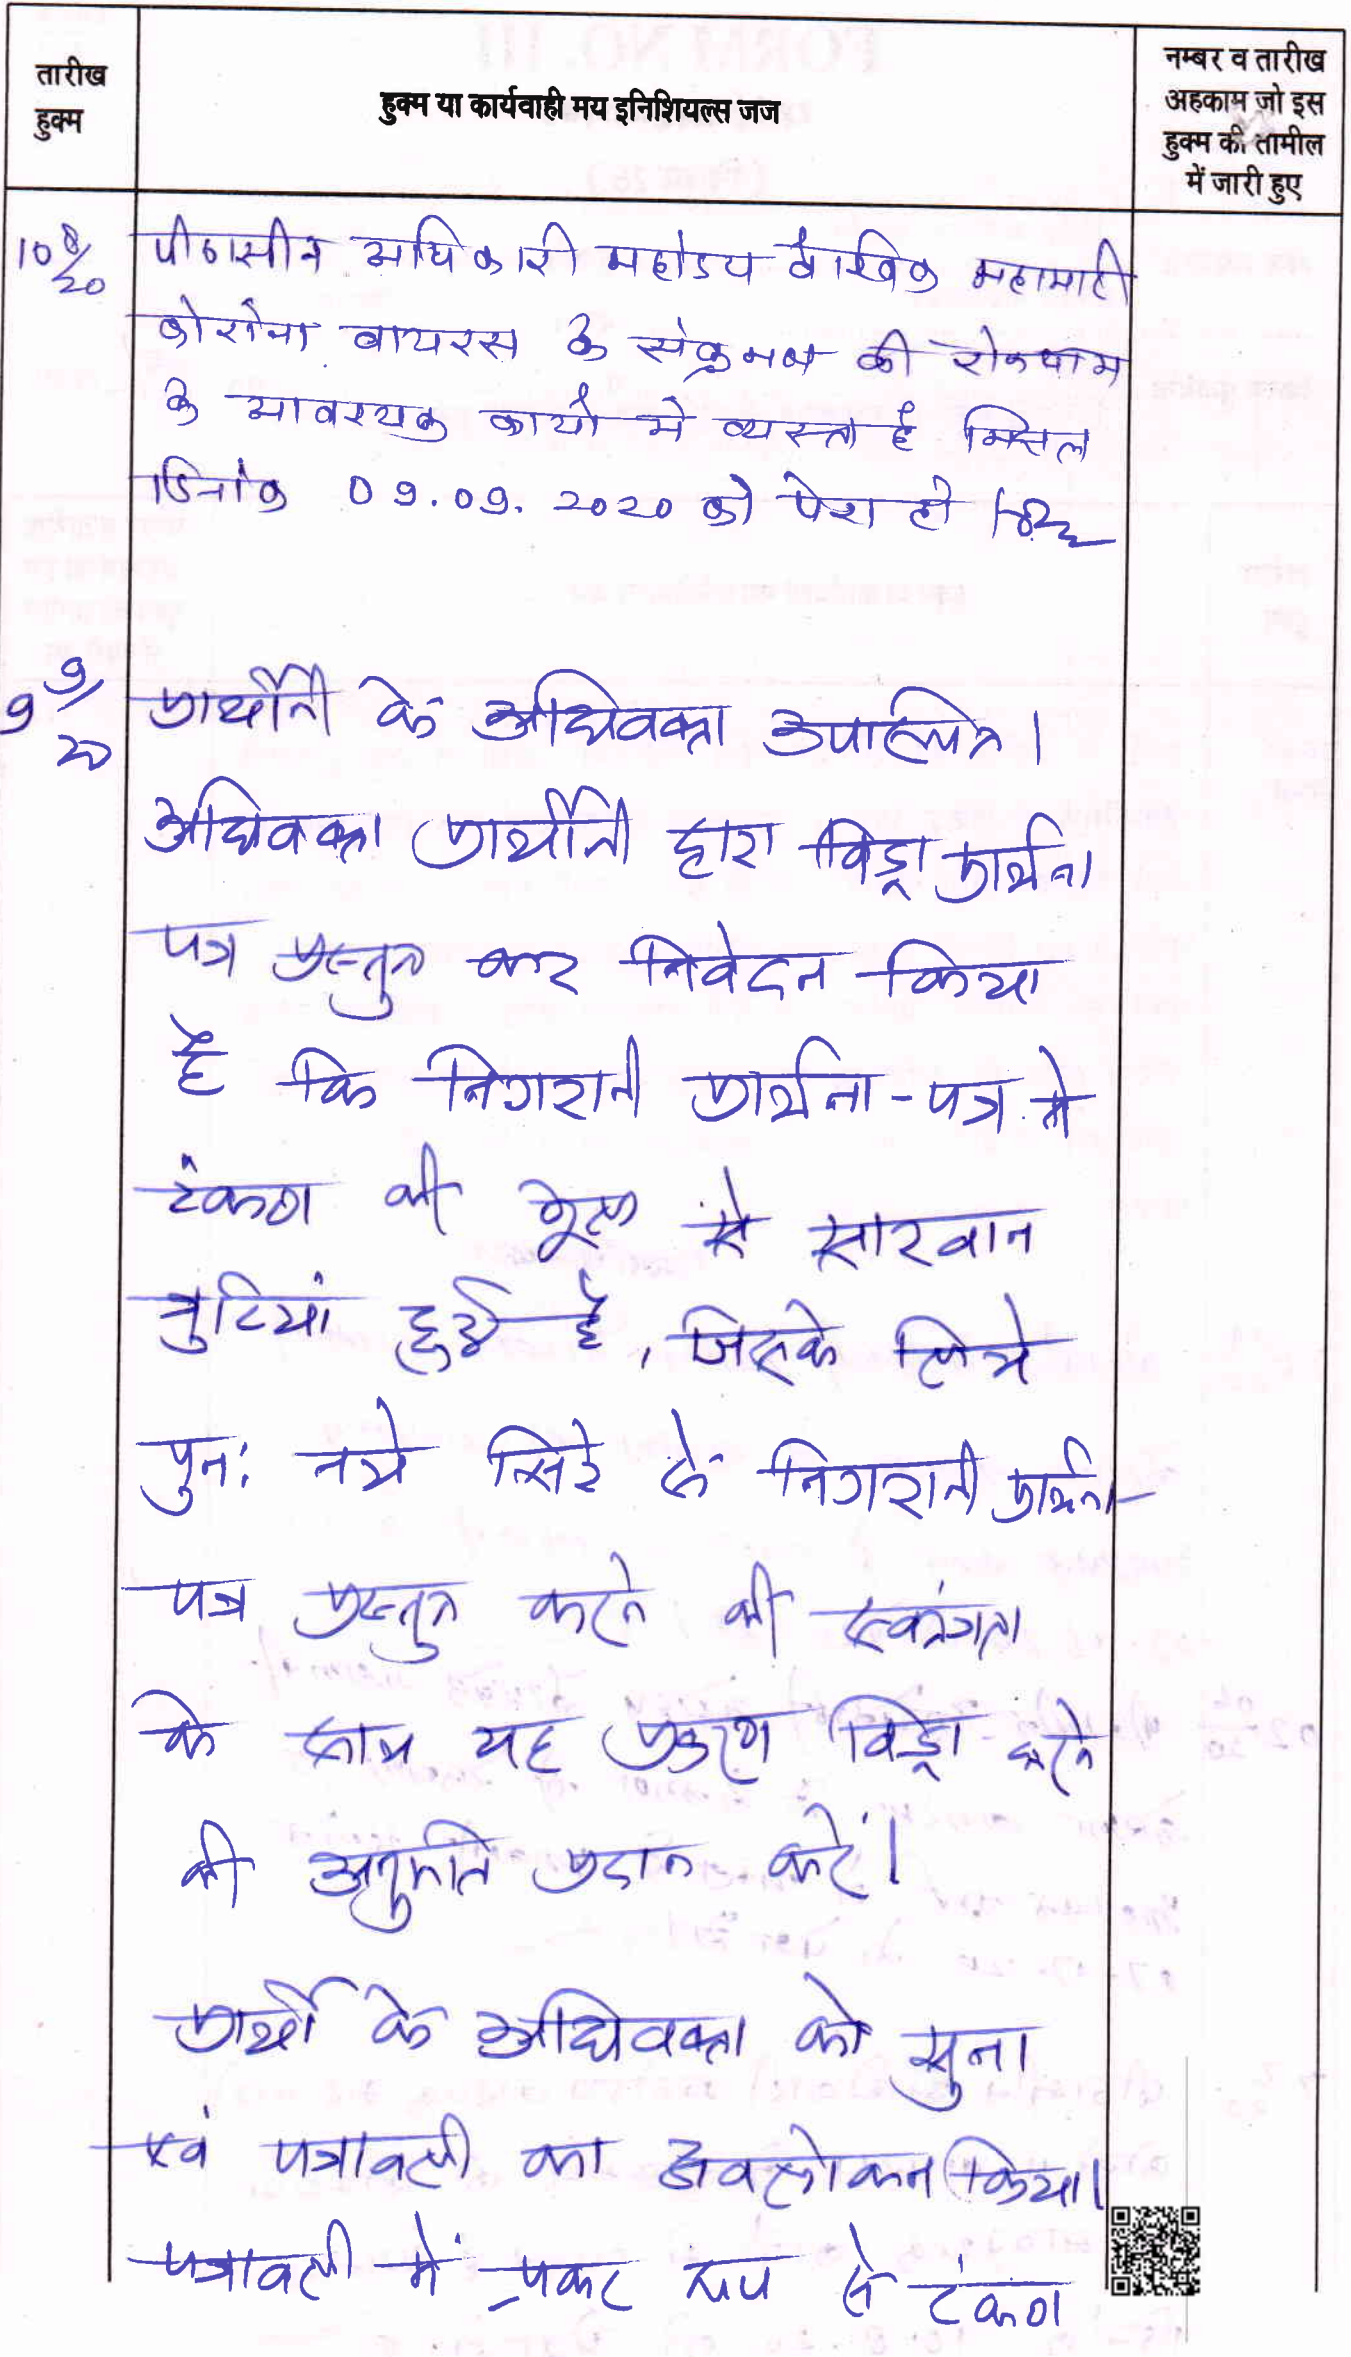 तारीख
हुक्म
हुक्म या कार्यवाही मय इनिशियल्स जज
नम्बर व तारीख
अहकाम जो इस
हुक्म की तामील
में जारी हुए
10 8/20
पीठासीन अधिकारी महोदय वैश्विक महामारी
कोरोना वायरस के संक्रमण की रोकथाम
के आवश्यक कार्यो मे व्यस्त है मिसल
दिनांक 09.09.2020 को पेश हो
9 9/20
प्रार्थीनी के अधिवक्ता उपस्थित।
अधिवक्ता प्रार्थीनी द्वारा विड्रा प्रार्थना
पत्र प्रस्तुत कर निवेदन किया
है कि निगरानी प्रार्थना-पत्र में
टंकण की भूल से सारवान
त्रुटियां हुई है, जिसके लिये
पुन: नये सिरे से निगरानी प्रार्थना-
पत्र प्रस्तुत करने की स्वतंत्रता
के साथ यह प्रकरण विड्रा करने
की अनुमति प्रदान करें।
प्रार्थी के अधिवक्ता को सुना
एवं पत्रावली का अवलोकन किया।
पत्रावली में प्रकट रूप से टंकण